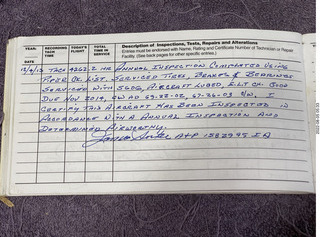 YEAR:
RECORDING TACH TIME
TODAY'S FLIGHT
TOTAL TIME IN SERVICE
Description of Inspections, Tests, Repairs and Alterations
Entries must be endorsed with Name, Rating and Certificate Number of Technician or Repair Facility. (See back pages for other specific entries.)
TACH 4262.2 HR ANNUAL INSPECTION COMPLETED USING
PIPER CK LIST. SERVICED TIRES, BRAKES & BEARINGS
SERVICED WITH 5606, AIRCRAFT LUBED, ELT CK. GOOD
DUE NOV 2014, CW AD
I
CERTIFY THIS AIRCRAFT HAS BEEN INSPECTED IN
ACCORDANCE WITH A ANNUAL INSPECTION AND
DETERMINED AIRWORTHY.
A+P 1583995 IA